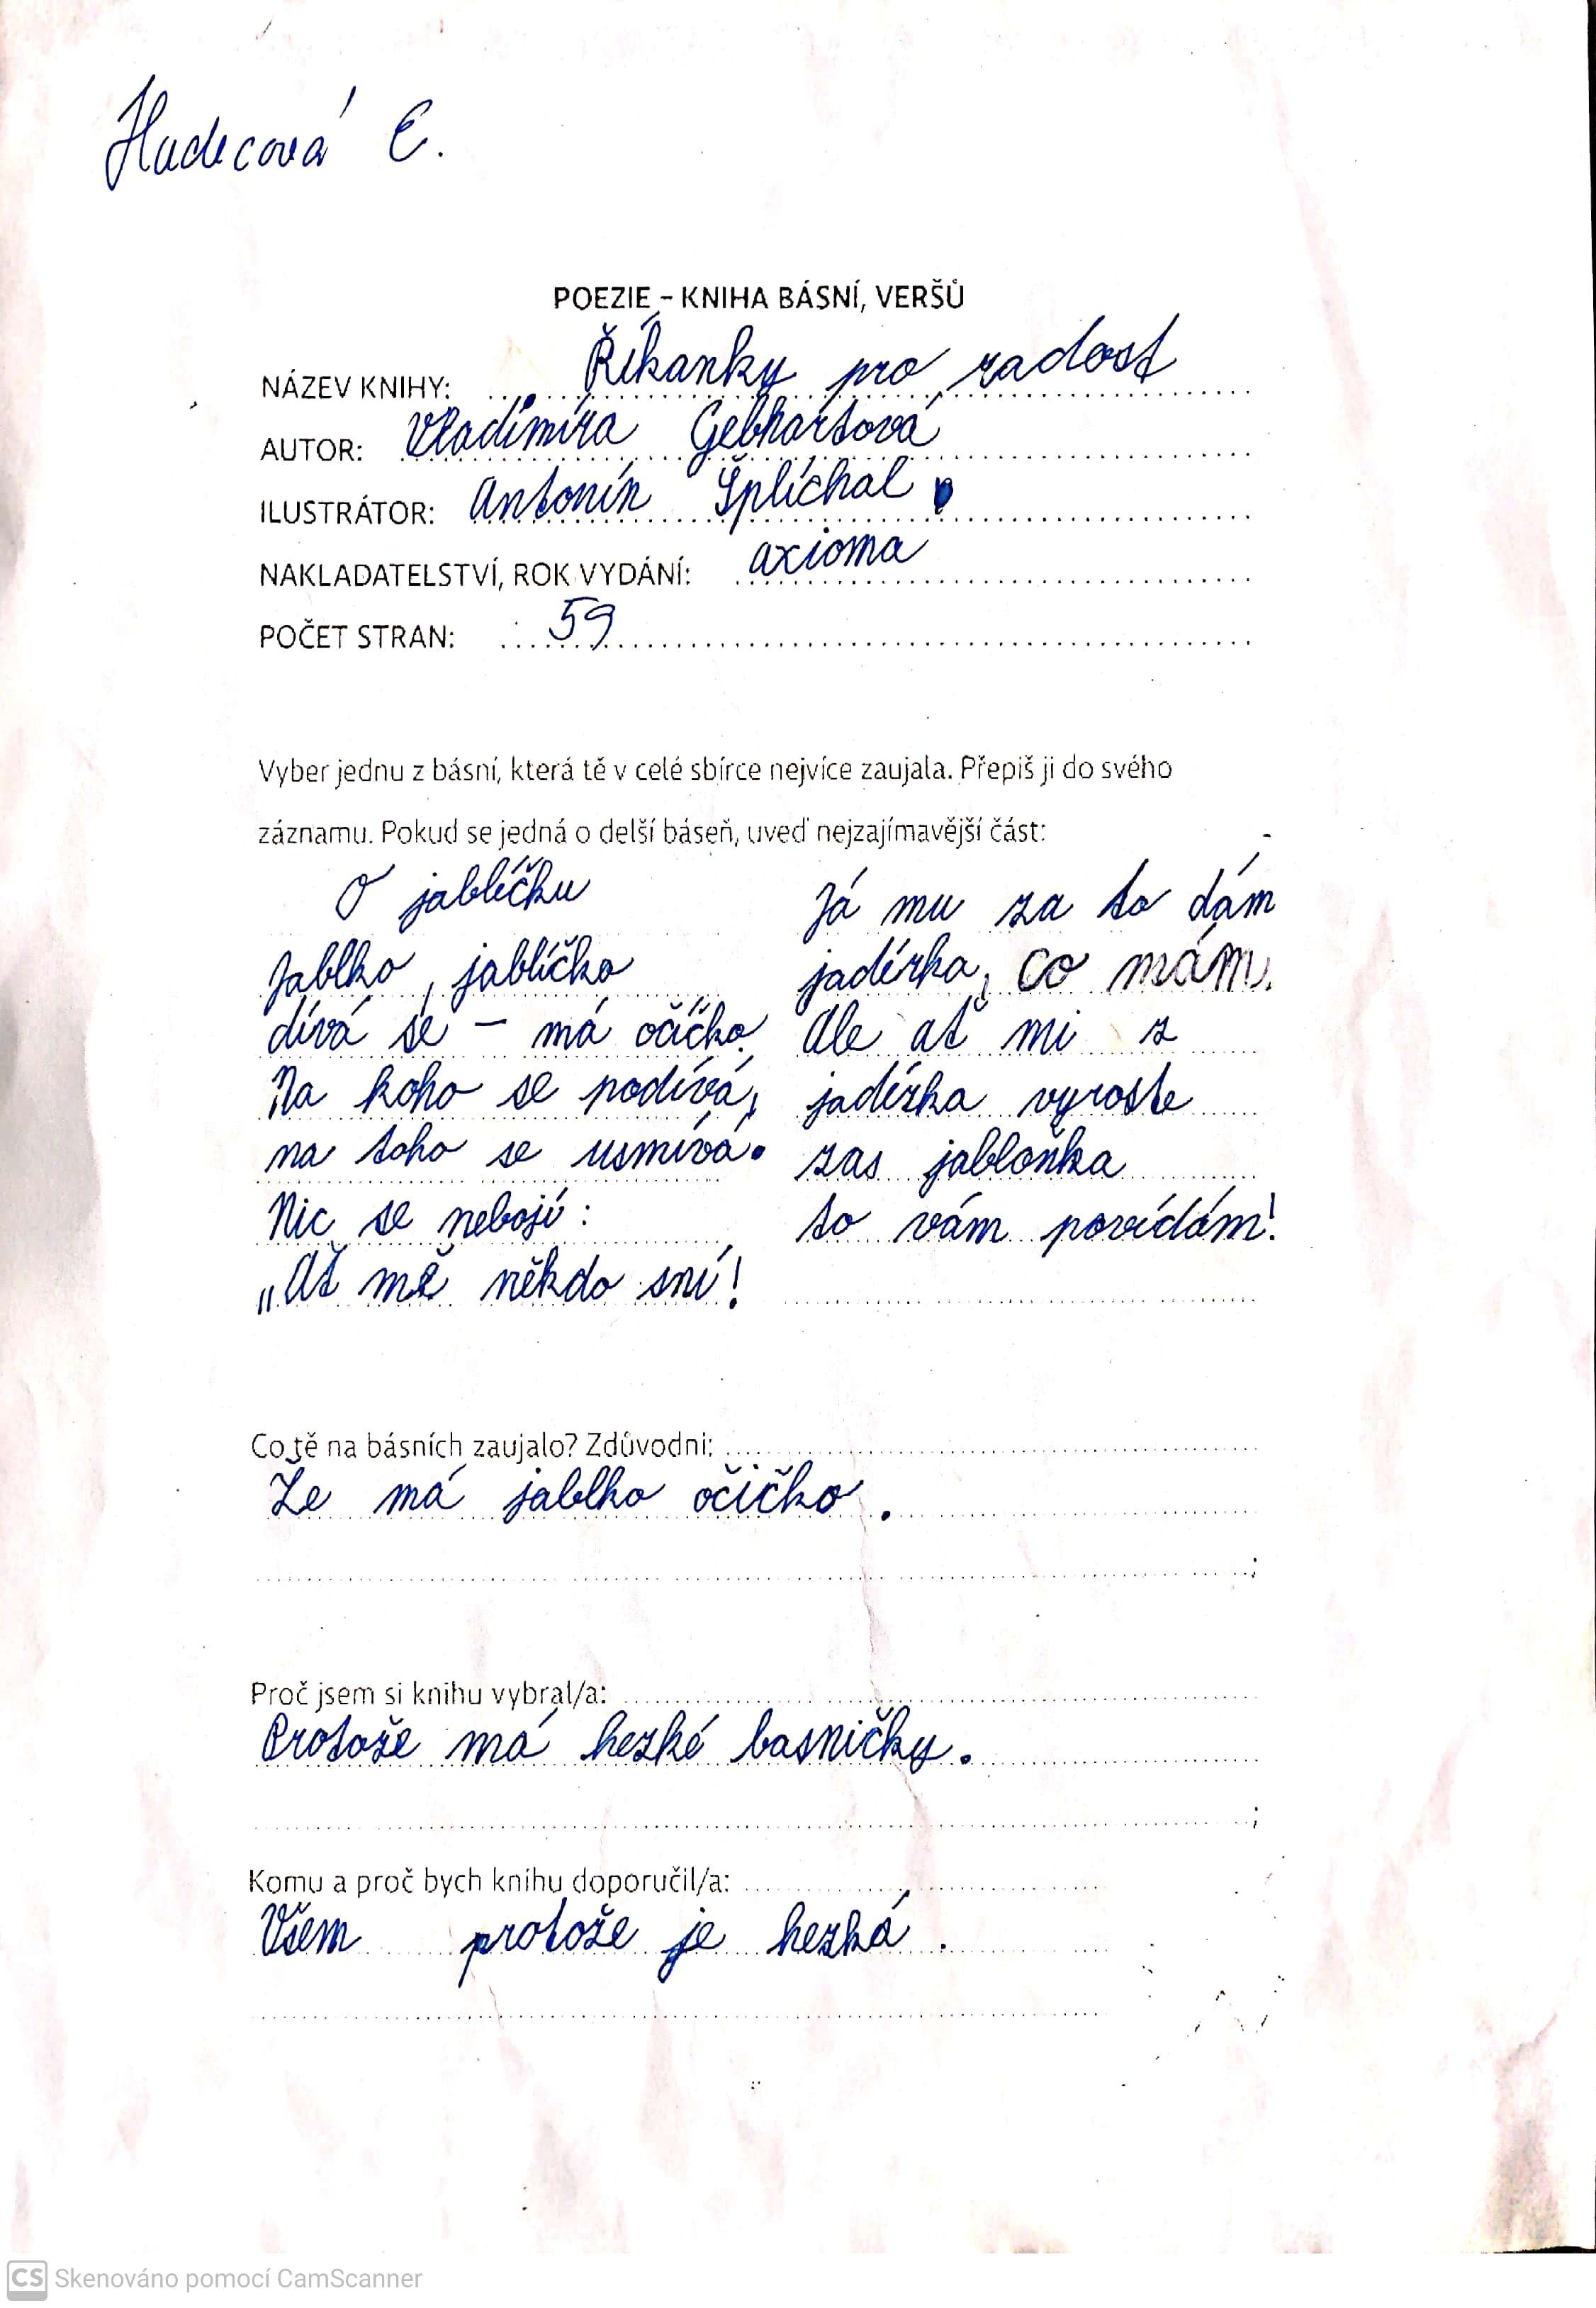 Hudecová E.
POEZIE – KNIHA BÁSNÍ, VERŠŮ
NÁZEV KNIHY: Říkanky pro radost
AUTOR: Vladimíra Gebhartová
ILUSTRÁTOR: Antonín Šplíchal
NAKLADATELSTVÍ, ROK VYDÁNÍ: axioma
POČET STRAN: 59
Vyber jednu z básní, která tě v celé sbírce nejvíce zaujala. Přepiš ji do svého
záznamu. Pokud se jedná o delší báseň, uveď nejzajímavější část:
O jablíčku
Jablko, jablíčko
dívá se – má očíčko.
Na koho se podívá,
na toho se usmívá.
Nic se nebojí:
„Ať mě někdo sní!
Já mu za to dám
jadérka, co mám.
Ale ať mi z
jadérka vyroste
zas jabloňka
to vám povídám!
Co tě na básních zaujalo? Zdůvodni:
Že má jablko očičko.
Proč jsem si knihu vybral/a:
Protože má hezké basničky.
Komu a proč bych knihu doporučil/a:
Všem protože je hezká.
CS Skenováno pomocí CamScanner